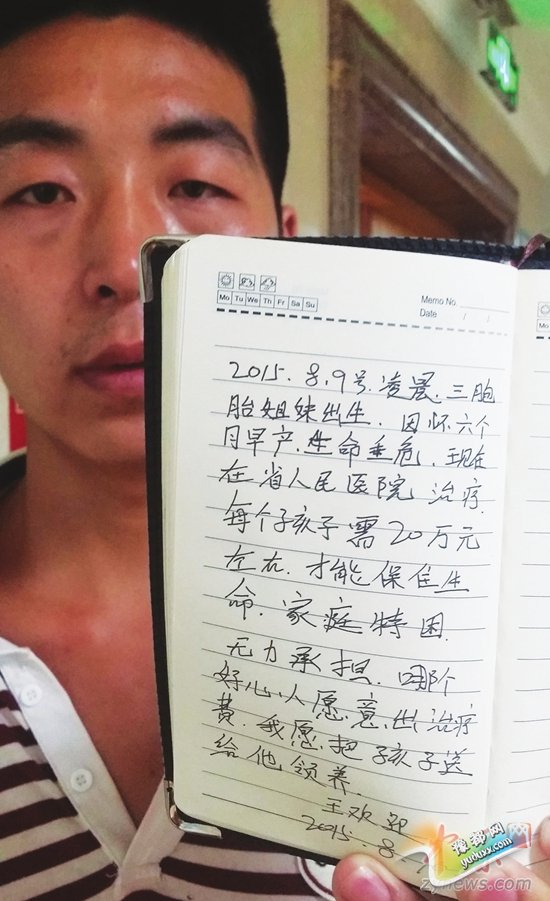 Mo Tu We Th Fr Sa Su
Memo No.
Date / /
2015.8.9号.凌晨.三胞
胎姐妹出生.因怀六个
月早产.生命垂危.现在
在省人民医院治疗.
每个孩子需20万元
左右.才能保住生
命.家庭特困.
无力承担.哪个
好心人愿意出治疗
费.我愿把孩子送
给他领养.
王欢
2015.8.
豫都网
yuduxx.com
zynews.com